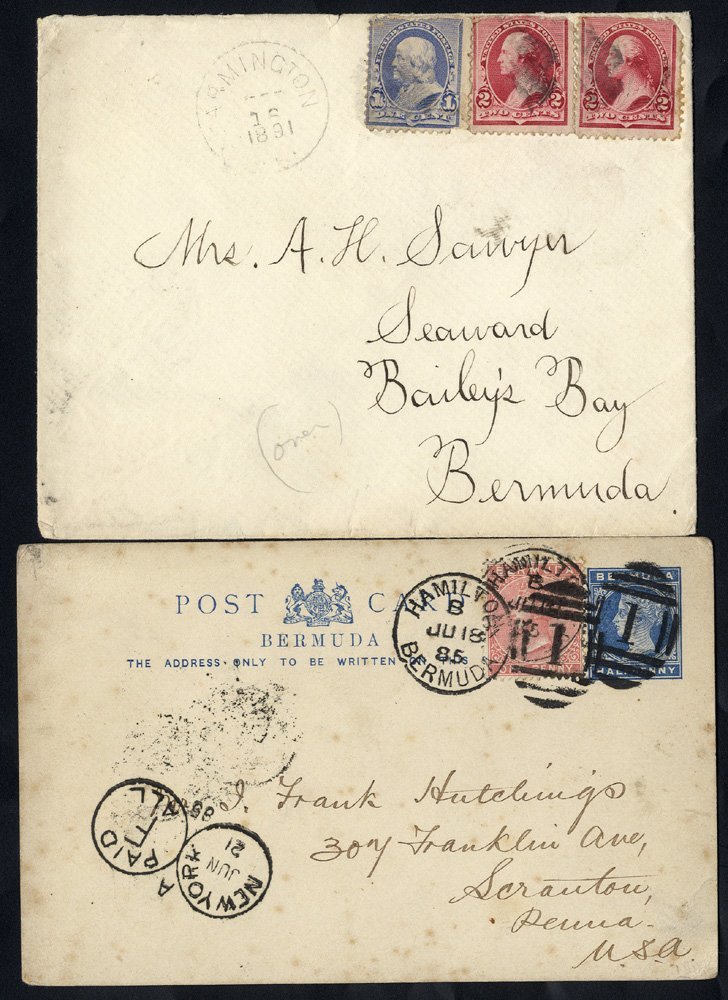 ARMINGTON
16
1891
UNITED STATES POSTAGE
1 1
ONE CENT
UNITED STATES POSTAGE
2 2
TWO CENTS
UNITED STATES POSTAGE
2 2
TWO CENTS
Mrs. A. H. Sawyer
Seaward
Bailey's Bay
Bermuda
(over)
POST CA
BERMUDA
THE ADDRESS ONLY TO BE WRITTEN
HAMILTON
B
JU 18
85
BERMUDA
HAMILT
B
1
BERMUDA
HALFPENNY
1
PAID
ALL
A
NEW YORK
JUN
21
85
J. Frank Hutchings
307 Franklin Ave,
Scranton,
Penna.
U.S.A.